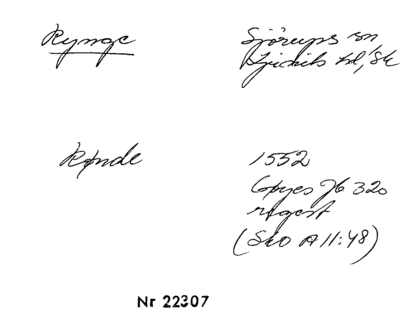 Rynge
Sjörups sn
Ljunits hd, Sk
Rynde
1552
Gøyes Jb 320
regest
(SkO A11:48)
Nr 22307